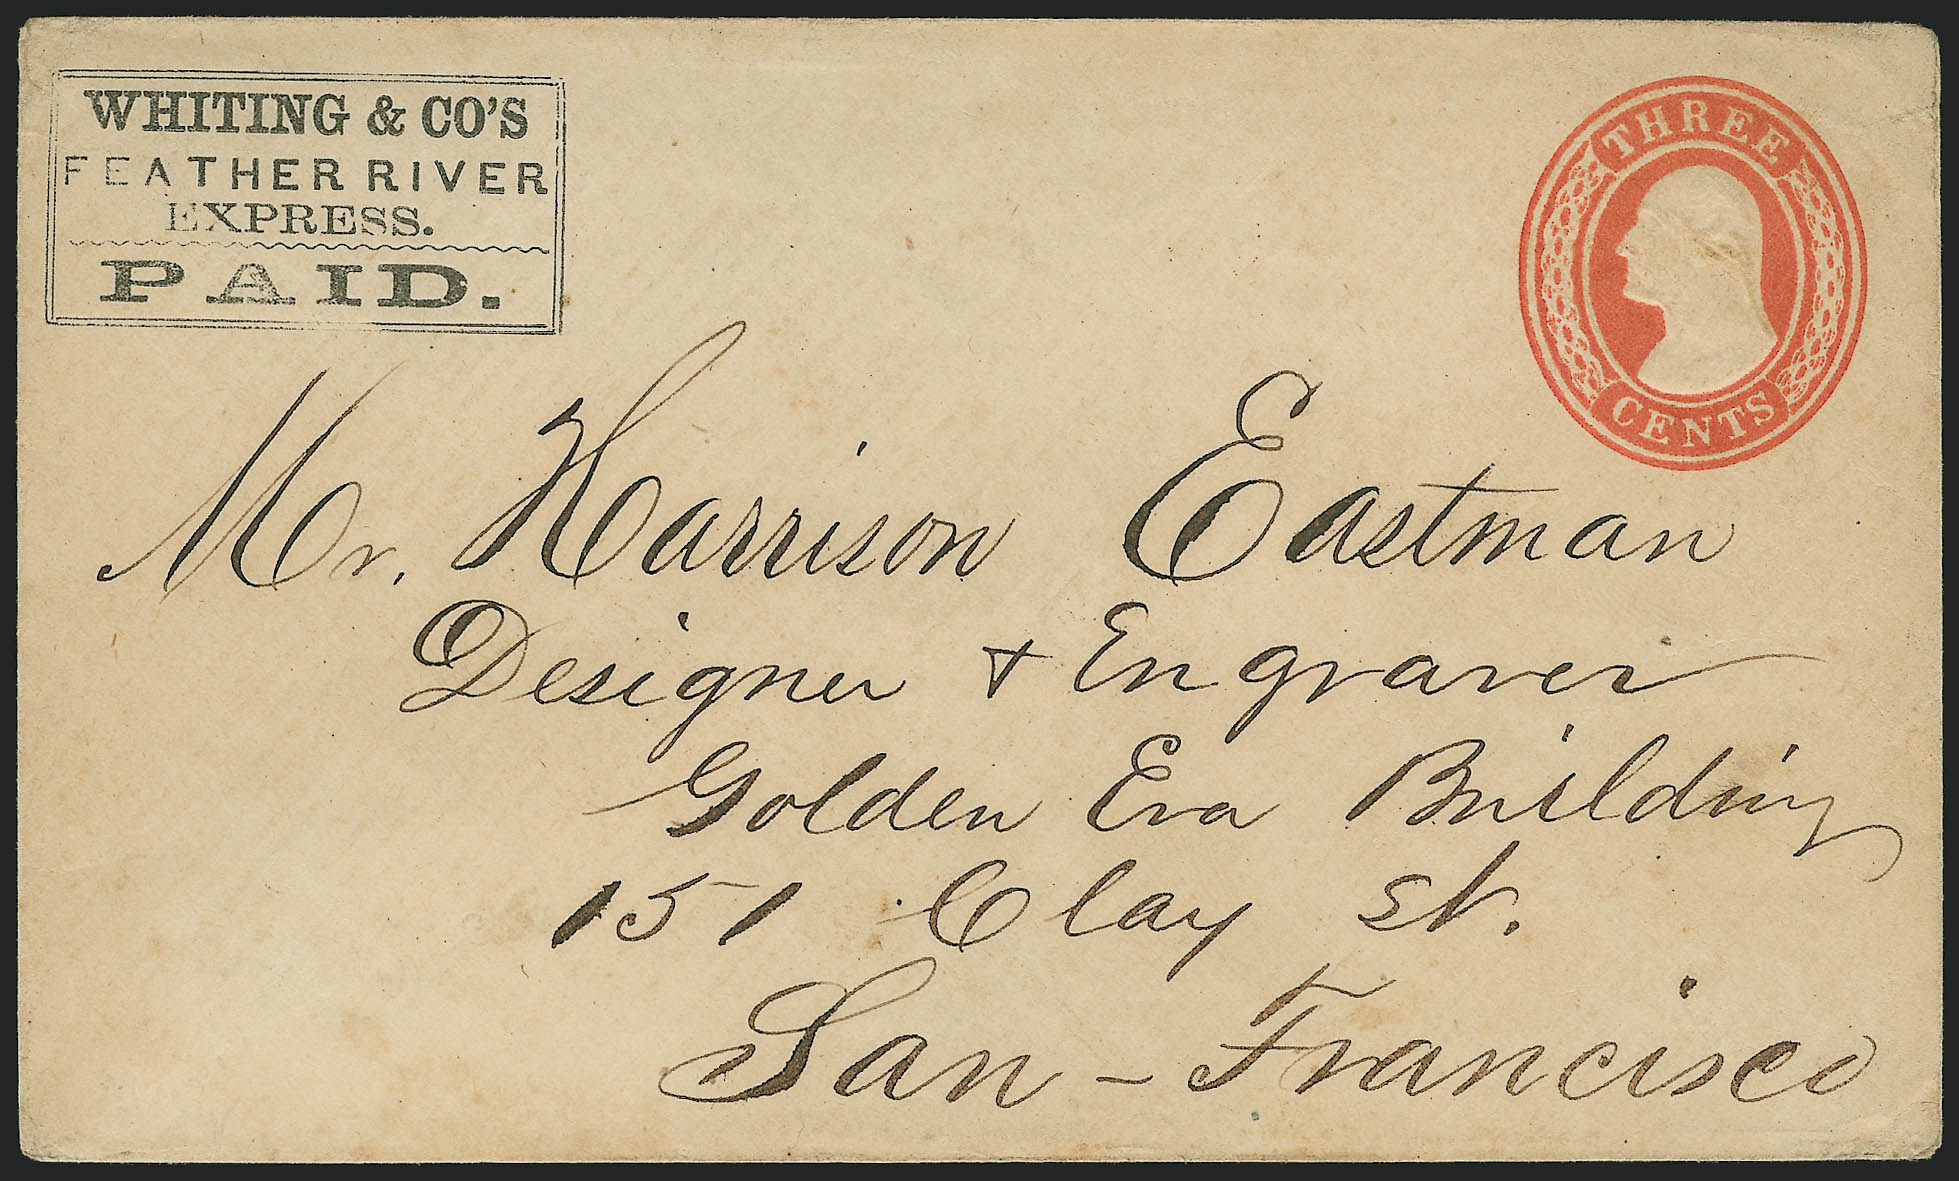 WHITING & CO'S
FEATHER RIVER
EXPRESS.
PAID.
THREE
CENTS
Mr. Harrison Eastman
Designer + Engraver
Golden Era Building
151 Clay St.
San - Francisco